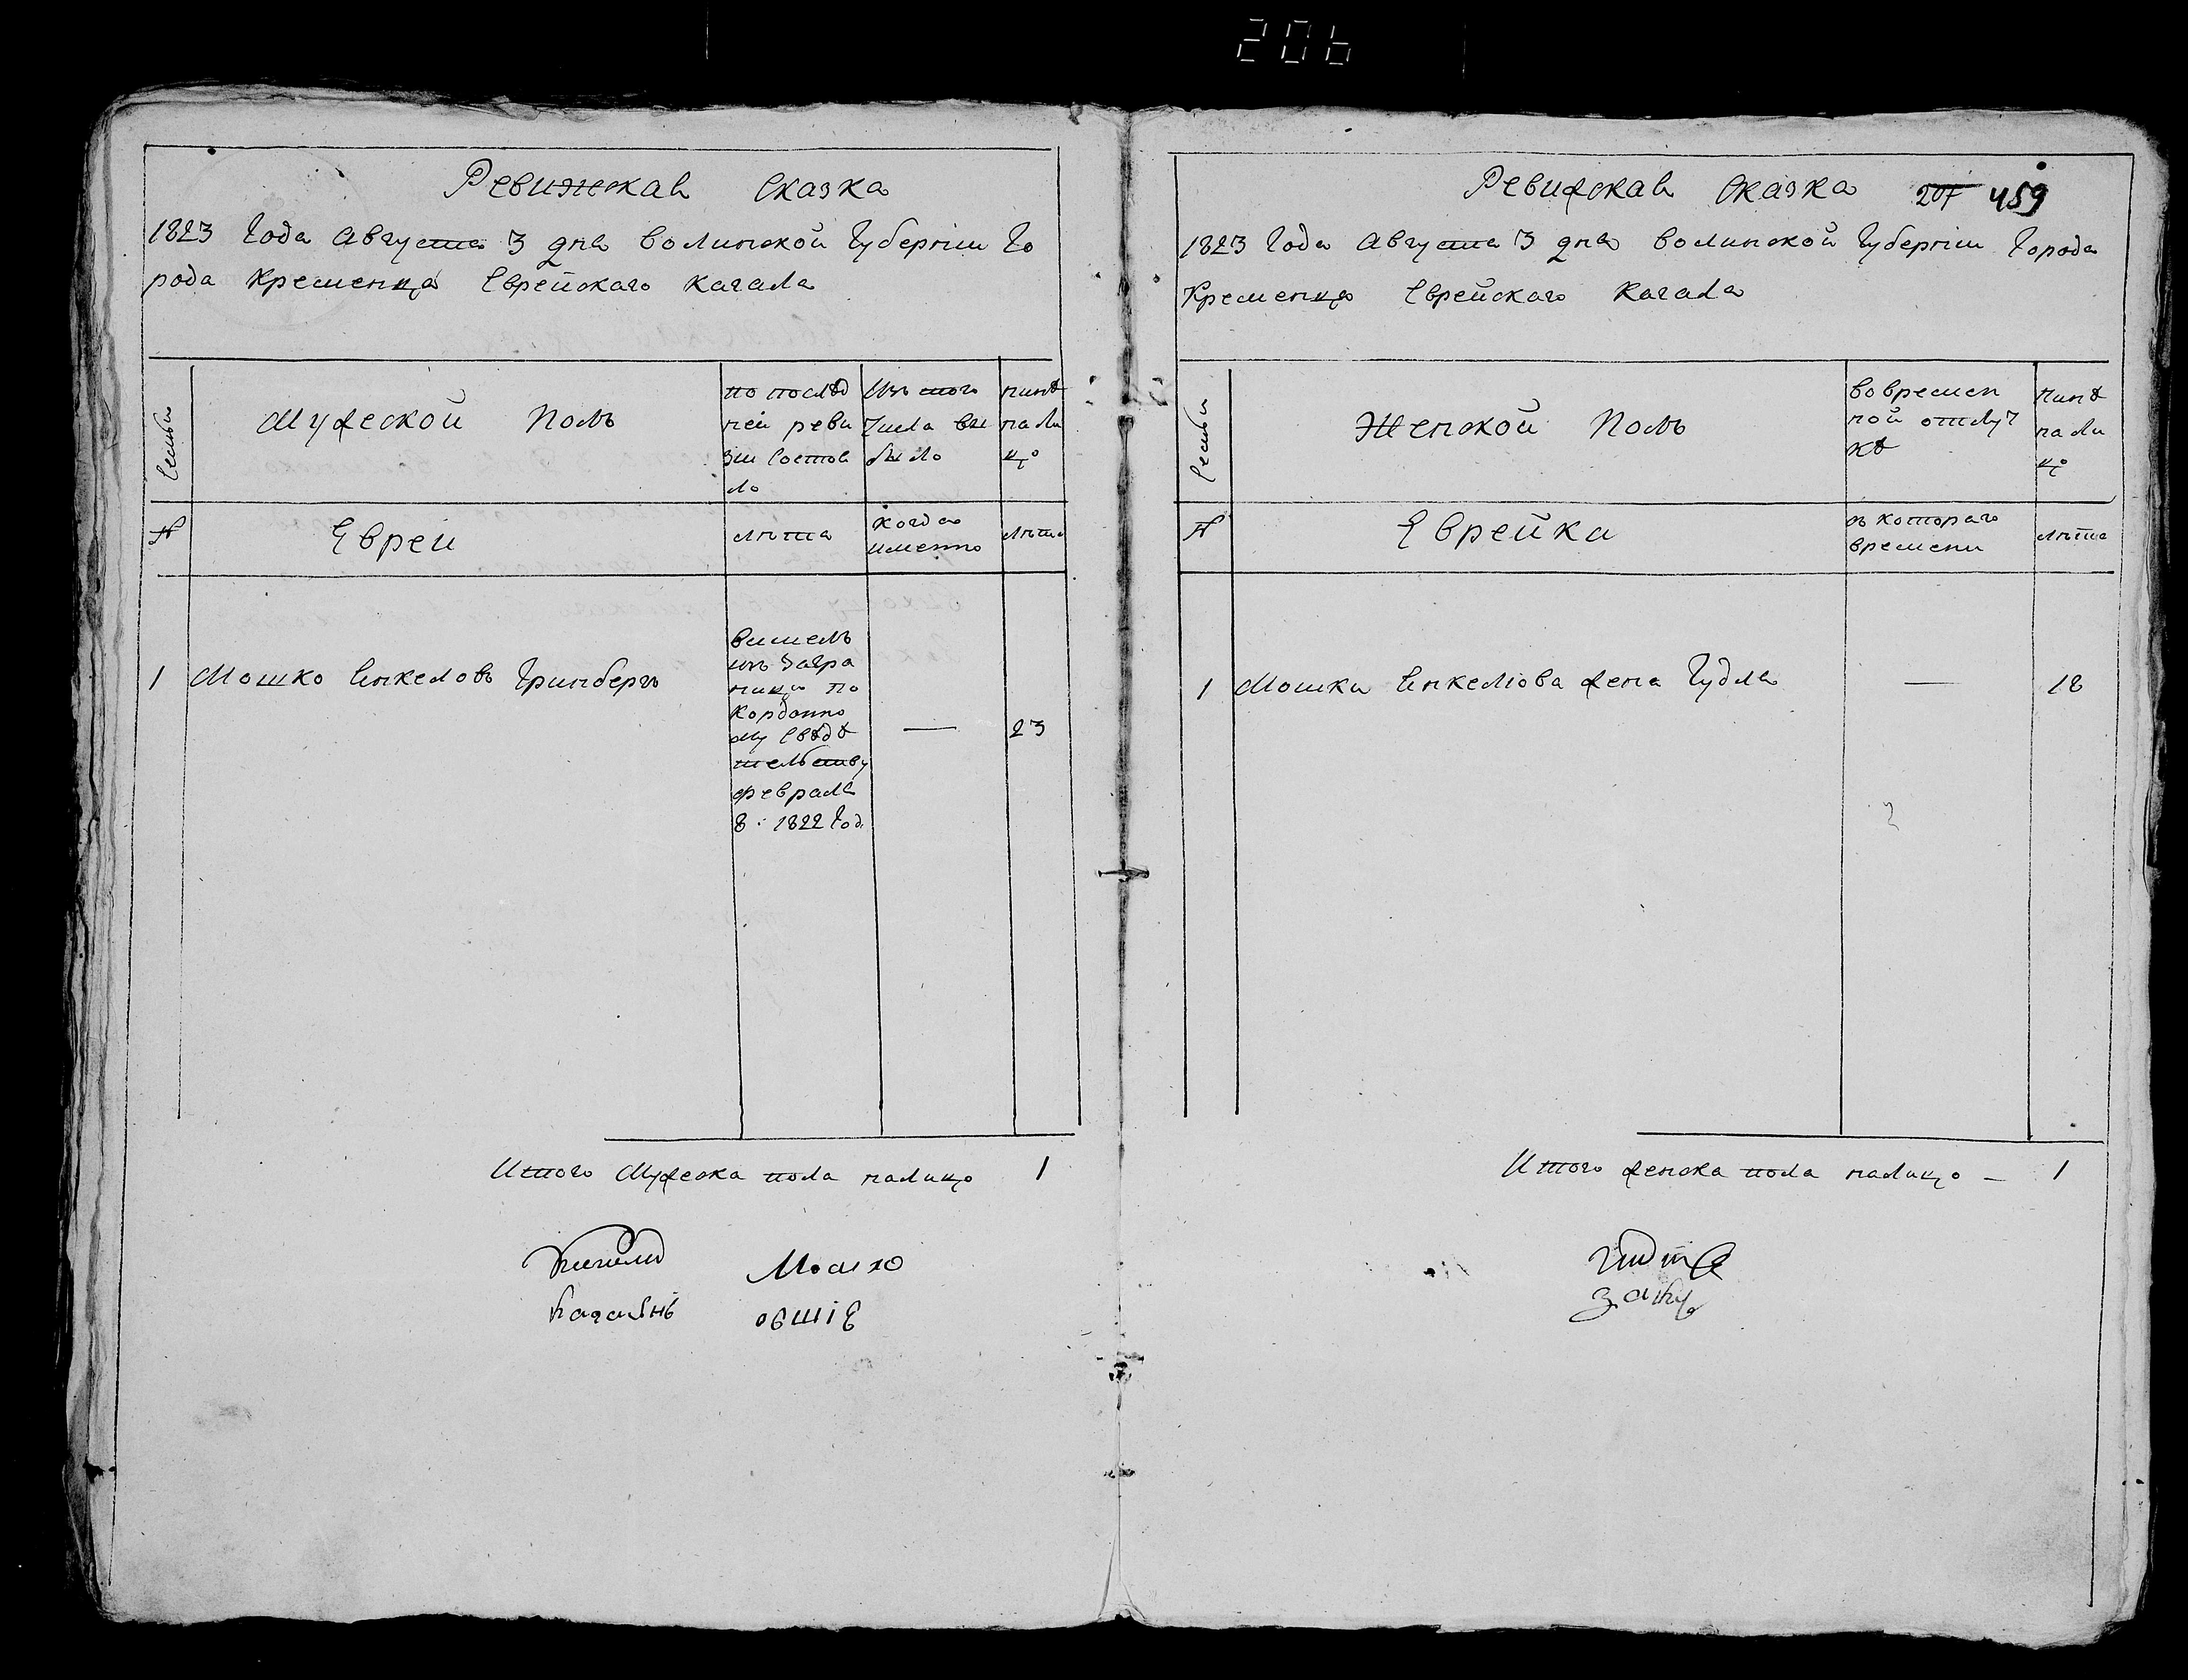 206
Ревижская Сказка
1823 Года Августа 3 дня Волинской Губернии Го
рода Кременца Еврейскаго Кагала
Семьи
Мужеской Полъ
по послѣд
ней реви
зии состоя
ло
Изъ того
Числа вы
было
нинѣ
на ли
цо
№
Евреи
лѣта
когда
именно
лѣта
1 Мошко Інкеловъ Гринбергъ
вишелъ
изъ Загра
ници по
Кордонно
му Свѣдѣ
тельству
февраля
8: 1822 Год.
—
23
Итого Мужеска пола налицо 1
Мошко
Ревижская Сказка 207 459
1823 Года Августа 3 дня Волинской Губернии Города
Кременца Еврейскаго Кагала
Семьи
Женской Полъ
во времен
ной отлуч
кѣ
нинѣ
на ли
цо
№
Еврейки
съ котораго
времени
лѣта
1 Мошки Інкелiова жена Гудля — 18
Итого женска пола налицо — 1